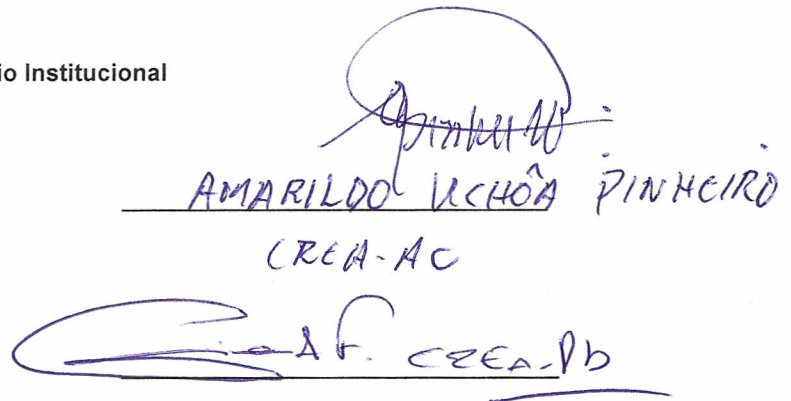 io Institucional
AMARILDO UCHÔA PINHEIRO
CREA-AC
CREA-Pb